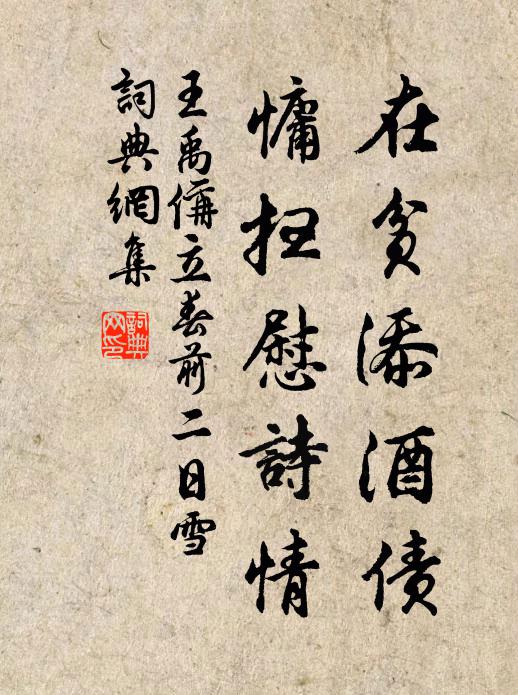 在貧添酒債
慵扫慰詩情
王禹偁立春前二日雪
詞典網集
詞典
网印